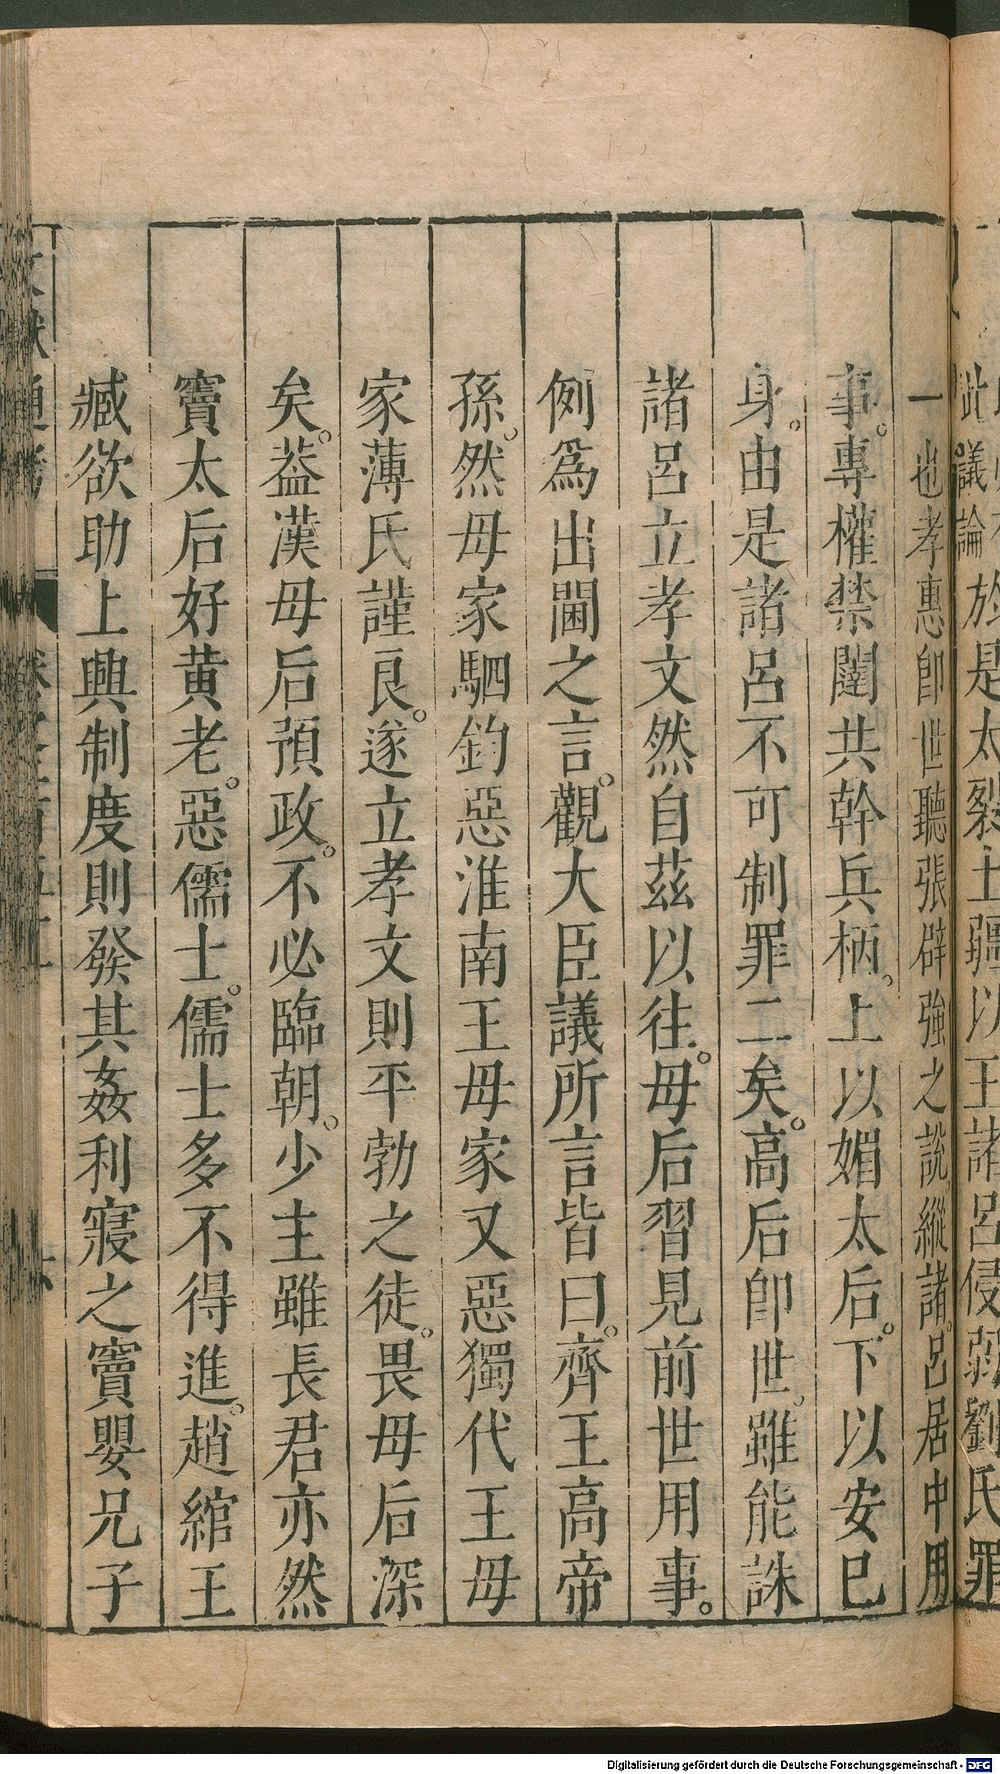 此議論於是太裂土疆以王諸呂侵弱劉氏罪
一也孝惠卽世聽張辟強之說縱諸呂居中用
事。專權禁闥共幹兵柄。上以媚太后。下以安已
身。由是諸呂不可制罪二矣。高后卽世。雖能誅
諸呂立孝文然自茲以往。毋后習見前世用事。
例爲出閫之言。觀大臣議所言皆曰。齊王高帝
孫。然毋家駟鈞惡淮南王毋家又惡獨代王毋
家薄氏謹良。遂立孝文則平勃之徒。畏毋后深
矣。葢漢毋后預政。不必臨朝。少主雖長君亦然
竇太后好黄老。惡儒士。儒士多不得進。趙綰王
臧欲助上興制度則發其姦利寢之竇嬰兄子
文獻通考
Digitalisierung gefördert durch die Deutsche Forschungsgemeinschaft - DFG